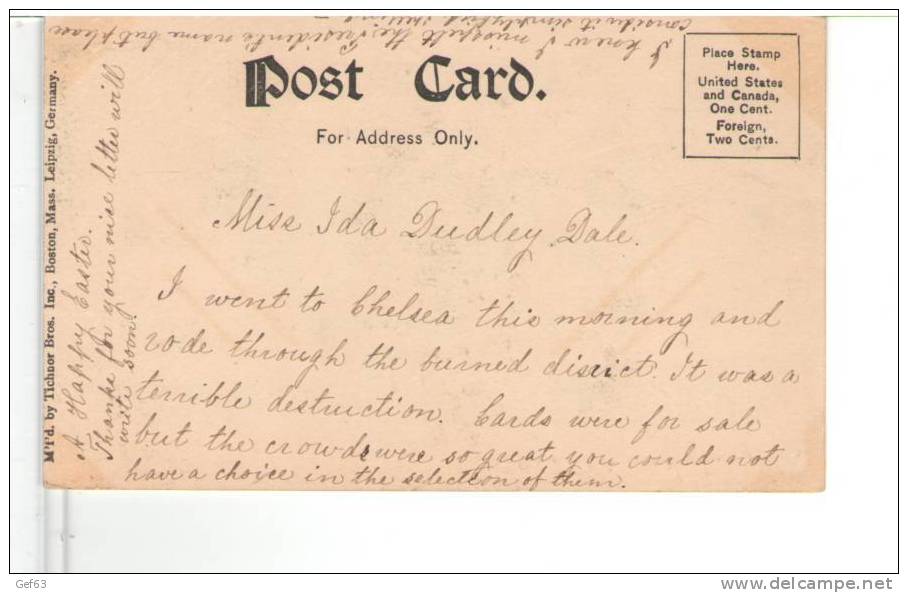 I knew I misspelt the President's name but please
consider it simplyfied spelling
Post Card.
For Address Only.
Place Stamp
Here.
United States
and Canada,
One Cent.
Foreign,
Two Cents.
M'f'd. by Tichnor Bros. Inc., Boston, Mass. Leipzig, Germany.
A Happy Easter.
Thanks for your nice letter will
write soon.
Miss Ida Dudley Dale.
I went to Chelsea this morning and
rode through the burned disrict. It was a
terrible destruction. Cards were for sale
but the crowds were so great you could not
have a choice in the selection of them.
Gef63
delcampe.net